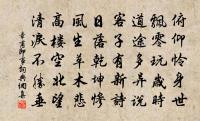 俯仰怜身世
飄零玩歲時
道途多異説
客子有新詩
日落乾坤慘
風生草木悲
高樓空北望
清淚不勝垂